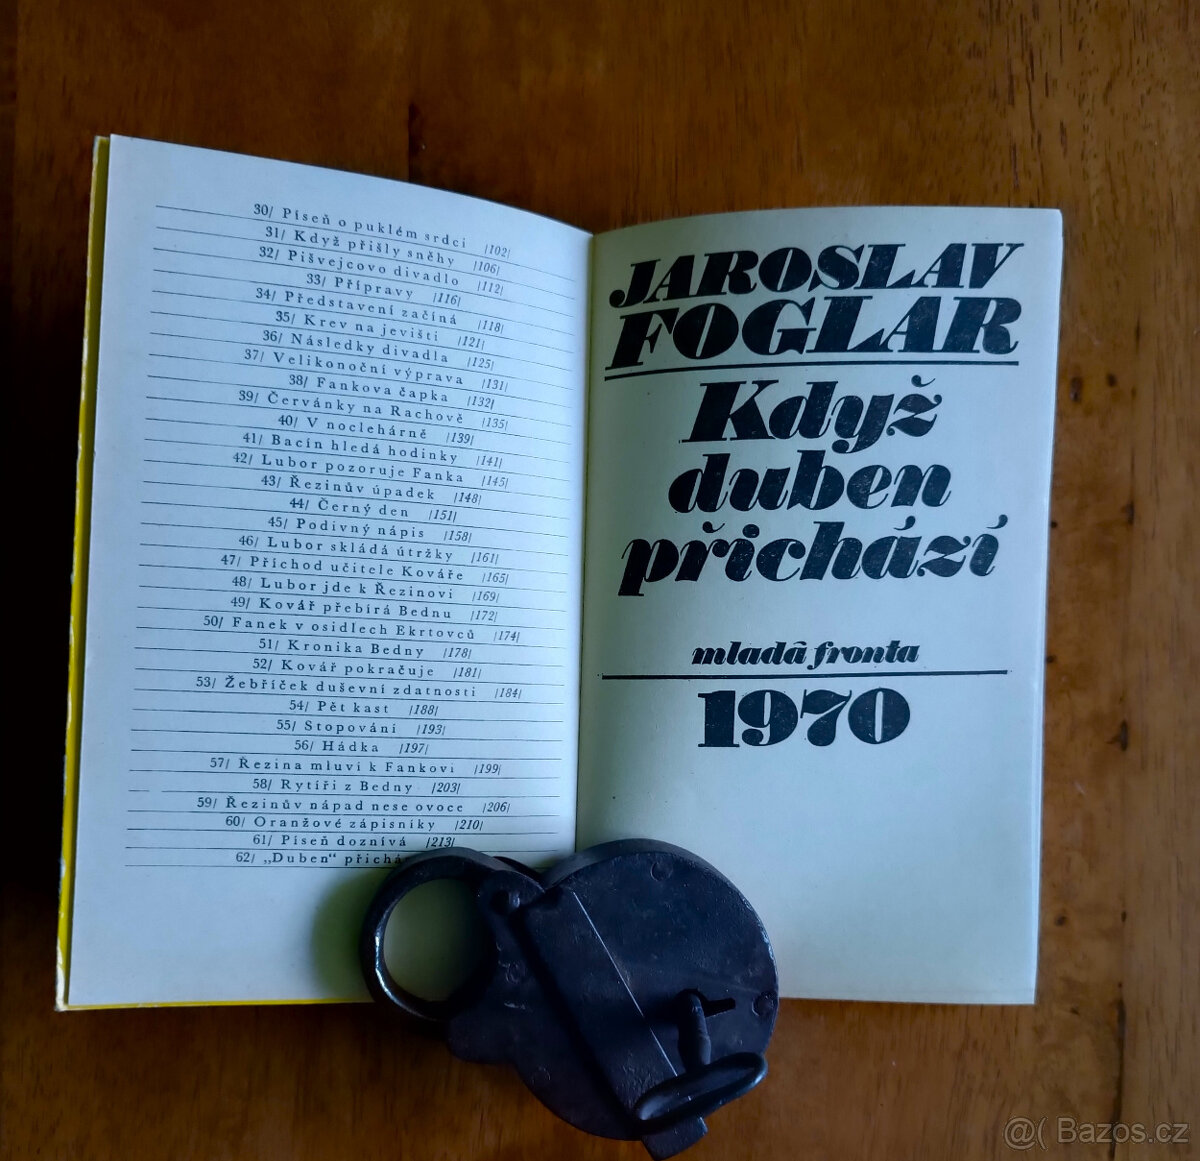 30/ Píseň o puklém srdci /102/
31/ Když přišly sněhy /106/
32/ Pišvejcovo divadlo /112/
33/ Přípravy /116/
34/ Představení začíná /118/
35/ Krev na jevišti /121/
36/ Následky divadla /125/
37/ Velikonoční výprava /131/
38/ Fankova čapka /132/
39/ Červánky na Rachově /135/
40/ V noclehárně /139/
41/ Bacín hledá hodinky /141/
42/ Lubor pozoruje Fanka /145/
43/ Řezinův úpadek /148/
44/ Černý den /151/
45/ Podivný nápis /158/
46/ Lubor skládá útržky /161/
47/ Příchod učitele Kováře /165/
48/ Lubor jde k Řezinovi /169/
49/ Kovář přebírá Bednu /172/
50/ Fanek v osidlech Ekrtovců /174/
51/ Kronika Bedny /178/
52/ Kovář pokračuje /181/
53/ Žebříček duševní zdatnosti /184/
54/ Pět kast /188/
55/ Stopování /193/
56/ Hádka /197/
57/ Řezina mluví k Fankovi /199/
58/ Rytíři z Bedny /203/
59/ Řezinův nápad nese ovoce /206/
60/ Oranžové zápisníky /210/
61/ Píseň doznívá /213/
62/ „Duben“
JAROSLAV
FOGLAR
Když
duben
přichází
mladá fronta
1970
@( Bazos.cz